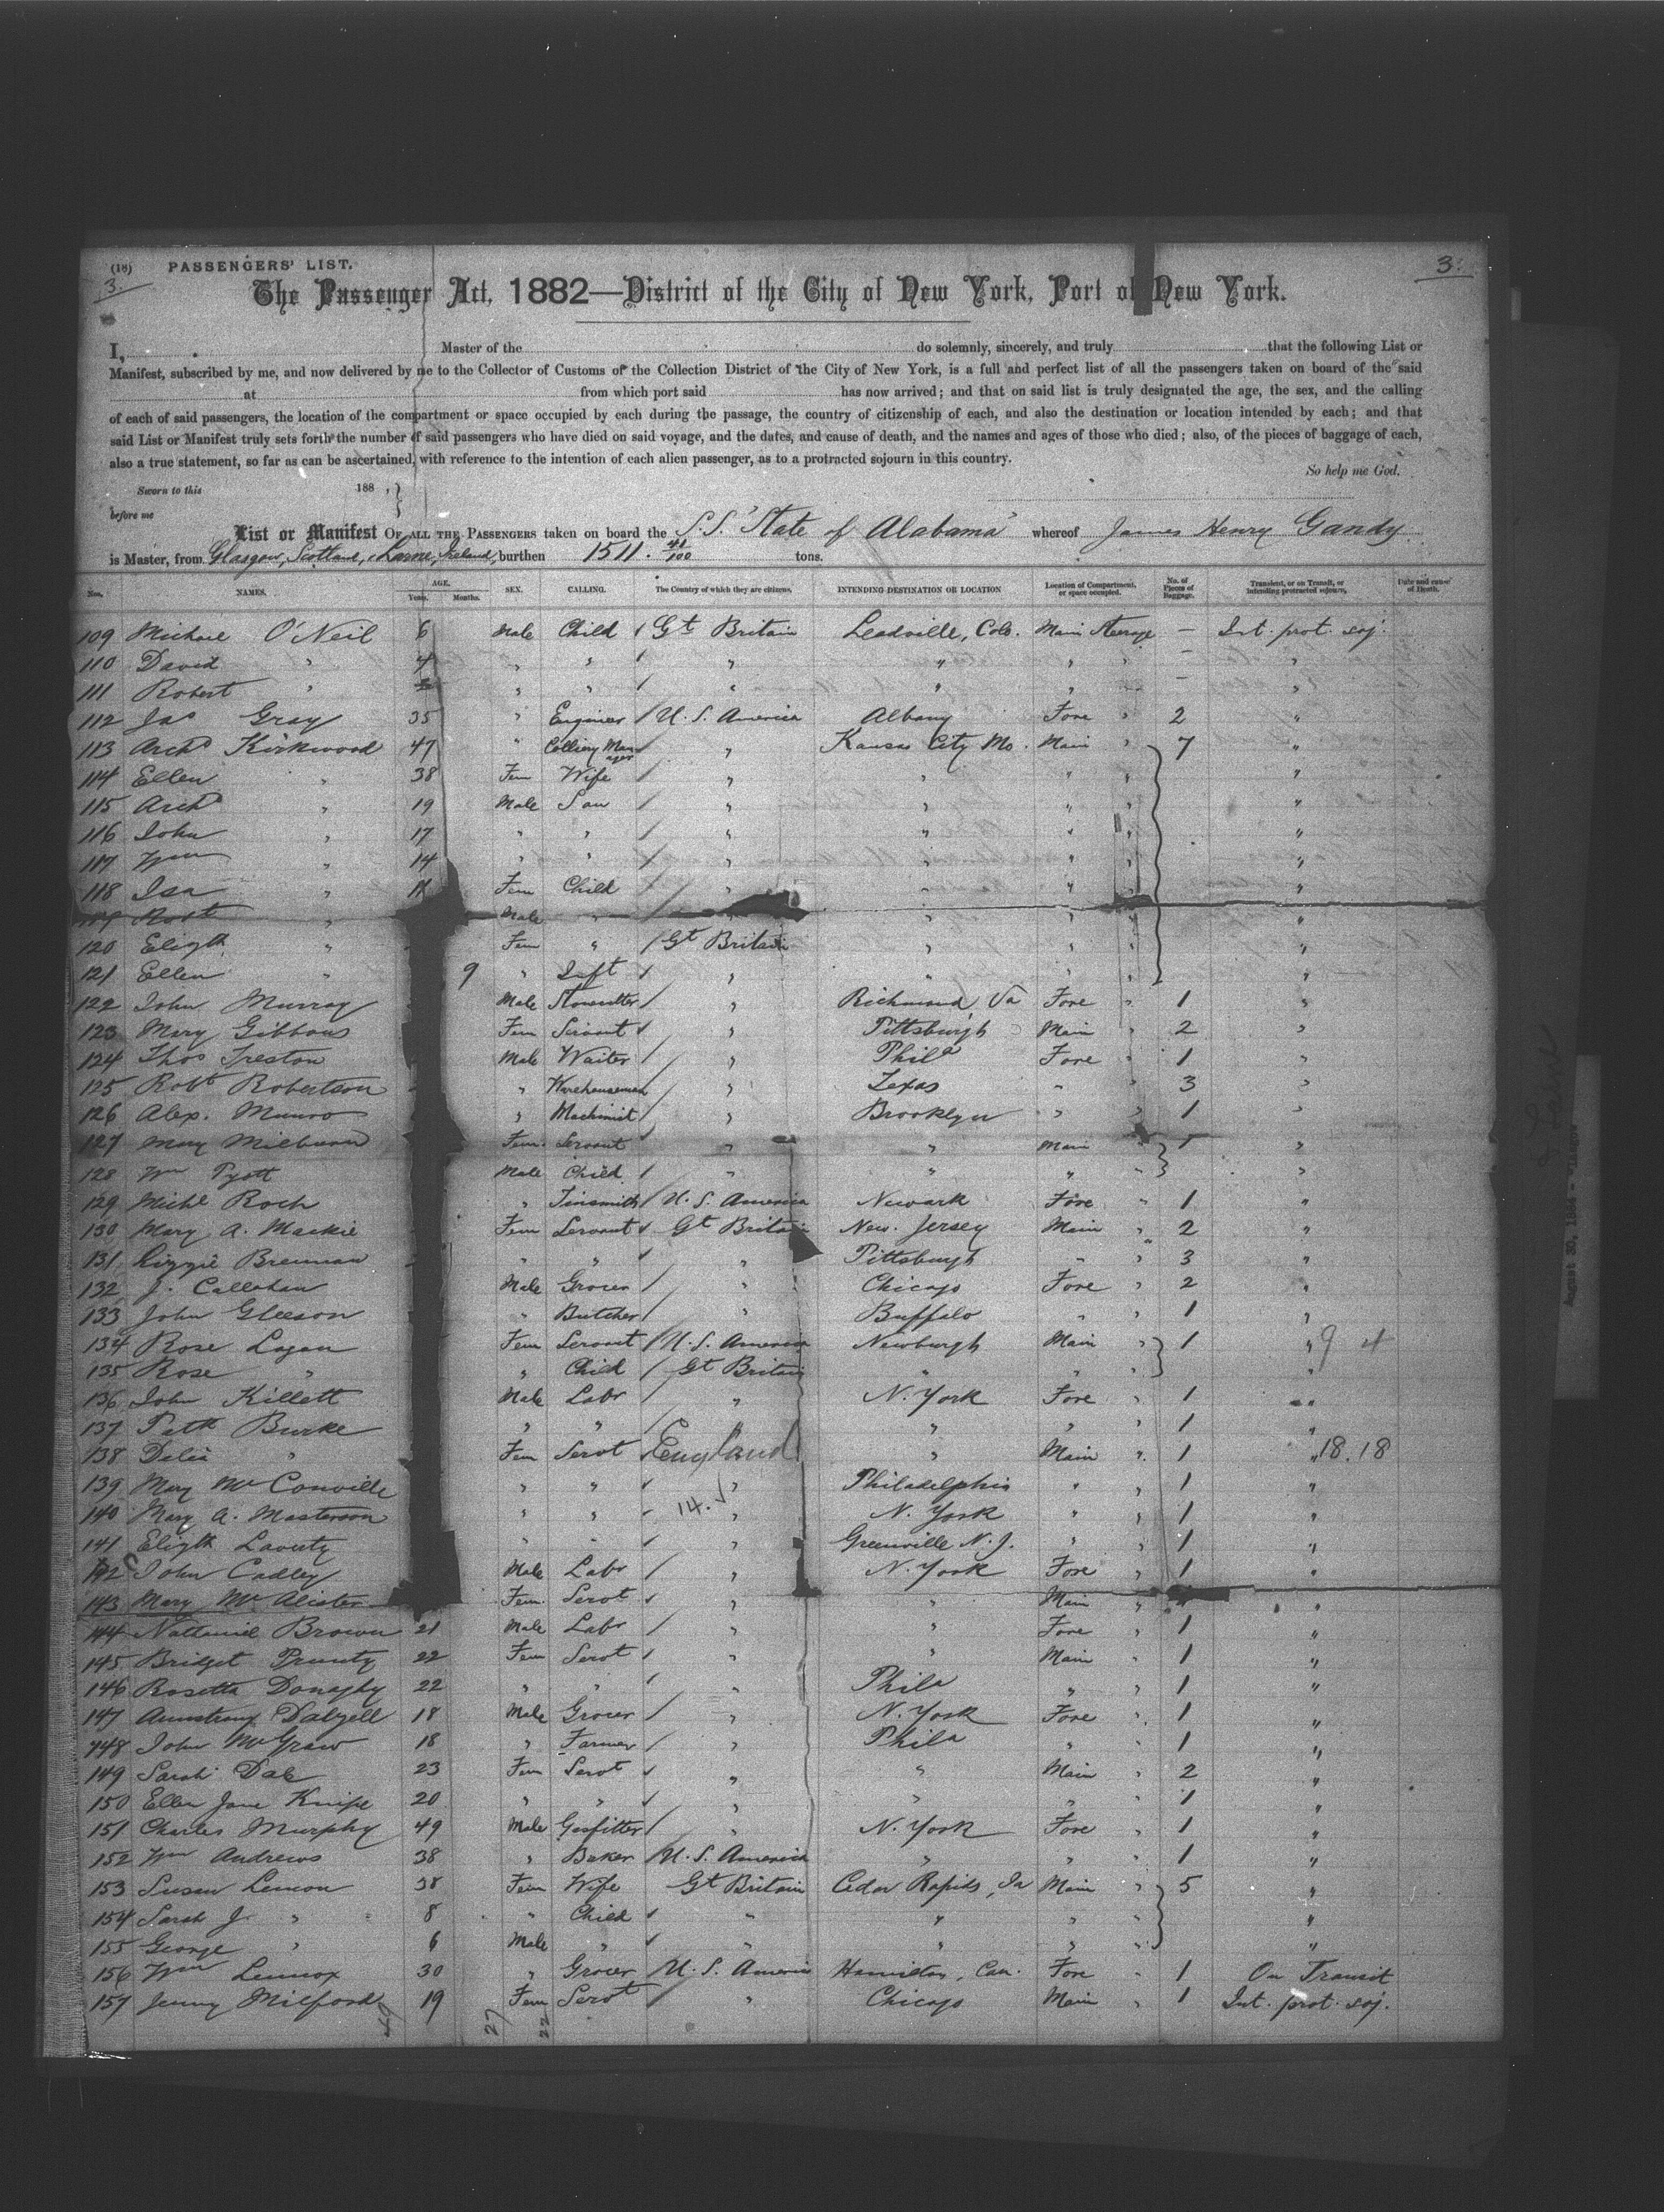 (18) PASSENGERS' LIST.
3. 3.
The Passenger Act, 1882—District of the City of New York, Port of New York.
I, Master of the do solemnly, sincerely, and truly that the following List or
Manifest, subscribed by me, and now delivered by me to the Collector of Customs of the Collection District of the City of New York, is a full and perfect list of all the passengers taken on board of the said
at from which port said has now arrived; and that on said list is truly designated the age, the sex, and the calling
of each of said passengers, the location of the compartment or space occupied by each during the passage, the country of citizenship of each, and also the destination or location intended by each; and that
said List or Manifest truly sets forth the number of said passengers who have died on said voyage, and the dates, and cause of death, and the names and ages of those who died; also, of the pieces of baggage of each,
also a true statement, so far as can be ascertained, with reference to the intention of each alien passenger, as to a protracted sojourn in this country.
So help me God.
Sworn to this 188 , }
before me
List or Manifest OF ALL THE PASSENGERS taken on board the S.S. "State of Alabama" whereof James Henry Gandy
is Master, from Glasgow, Scotland, & Larne, Ireland, burthen 1511. 41/100 tons.
Nos. NAMES. AGE. Years. Months. SEX. CALLING. The Country of which they are citizens. INTENDING DESTINATION OR LOCATION Location of Compartment, or space occupied. No. of Pieces of Baggage. Transient, or on Transit, or intending protracted sojourn. Date and cause of Death.
109 Michael O'Neil 6 Male Child / Gt Britain Leadville, Colo. Main Steerage — Int. prot. soj.
110 David " 4 " " / " " " " — "
111 Robert " " " / " " " " — "
112 Jas Gray 35 " Engineer / U.S. America Albany Fore " 2 "
113 Archd Kirkwood 47 " Colliery Manager / " Kansas City Mo. Main " 7 "
114 Ellen " 38 Fem Wife / " " " " "
115 Archd " 19 Male Son / " " " " "
116 John " 17 " " / " " " " "
117 Wm " 14 " " / " " " " "
118 Isa " 11 Fem Child / " " " " "
119 Robt " Male " / " " " " "
120 Elizth " Fem " / Gt Britain " " " "
121 Ellen " 9 " Inft / " " " " "
122 John Murray Male Stonecutter / " Richmond Va Fore " 1 "
123 Mary Gibbons Fem Servant / " Pittsburgh Main " 2 "
124 Thos Treston Male Waiter / " Phila Fore " 1 "
125 Robt Robertson " Warehouseman / " Texas " " 3 "
126 Alex. Munro " Machinist / " Brooklyn " " 1 "
127 Mary Milburn Fem. Servant / " " Main " 1 "
128 Wm Pyott Male Child / " " " " "
129 Michl Roch " Tinsmith / U.S. America Newark Fore " 1 "
130 Mary A. Mackie Fem Servant / Gt Britain New. Jersey Main " 2 "
131 Lizzie Brennan " " / " Pittsburgh " " 3 "
132 J. Callahan Male Grocer / " Chicago Fore " 2 "
133 John Gleeson " Butcher / " Buffalo " " 1 "
134 Rose Logan Fem Servant / U.S. America Newburgh Main " 1 " 9 4
135 Rose " " Child / Gt Britain " " " "
136 John Killett Male Labr / " N. York Fore " 1 "
137 Patk Burke " " / " " " 1 "
138 Delia " Fem Servt England " Main " 1 " 18.18
139 Mary McConville " " / " Philadelphia " " 1 "
140 Mary A. Masterson " " / 14. " N. York " " 1 "
141 Elizth Laverty " " / " Greenville N.J. " " 1 "
142 John Cadley Male Labr / " N. York Fore " 1 "
143 Mary McAlister Fem. Servt / " " Main " "
144 Nathaniel Brown 21 Male Labr / " " Fore " 1 "
145 Bridget Prunty 22 Fem Servt / " " Main " 1 "
146 Rosetta Donaghy 22 " " / " Phila " " 1 "
147 Armstrong Dalzell 18 Male Grocer / " N. York Fore " 1 "
148 John McGraw 18 " Farmer / " Phila " " 1 "
149 Sarah Dale 23 Fem Servt / " " Main " 2 "
150 Ellen Jane Knipe 20 " " / " " " " 1 "
151 Charles Murphy 49 Male Gasfitter / " N. York Fore " 1 "
152 Wm Andrews 38 " Baker / U.S. America " " " 1 "
153 Susan Lemon 38 Fem Wife Gt Britain Cedar Rapids, Ia Main " 5 "
154 Sarah J. " 8 " Child / " " " " "
155 George " 6 Male " / " " " " "
156 Wm Lennox 30 " Grocer U.S. America Hamilton, Can. Fore " 1 On Transit
157 Jenny Milford 19 Fem Servt / " Chicago Main " 1 Int. prot. soj.
27 22